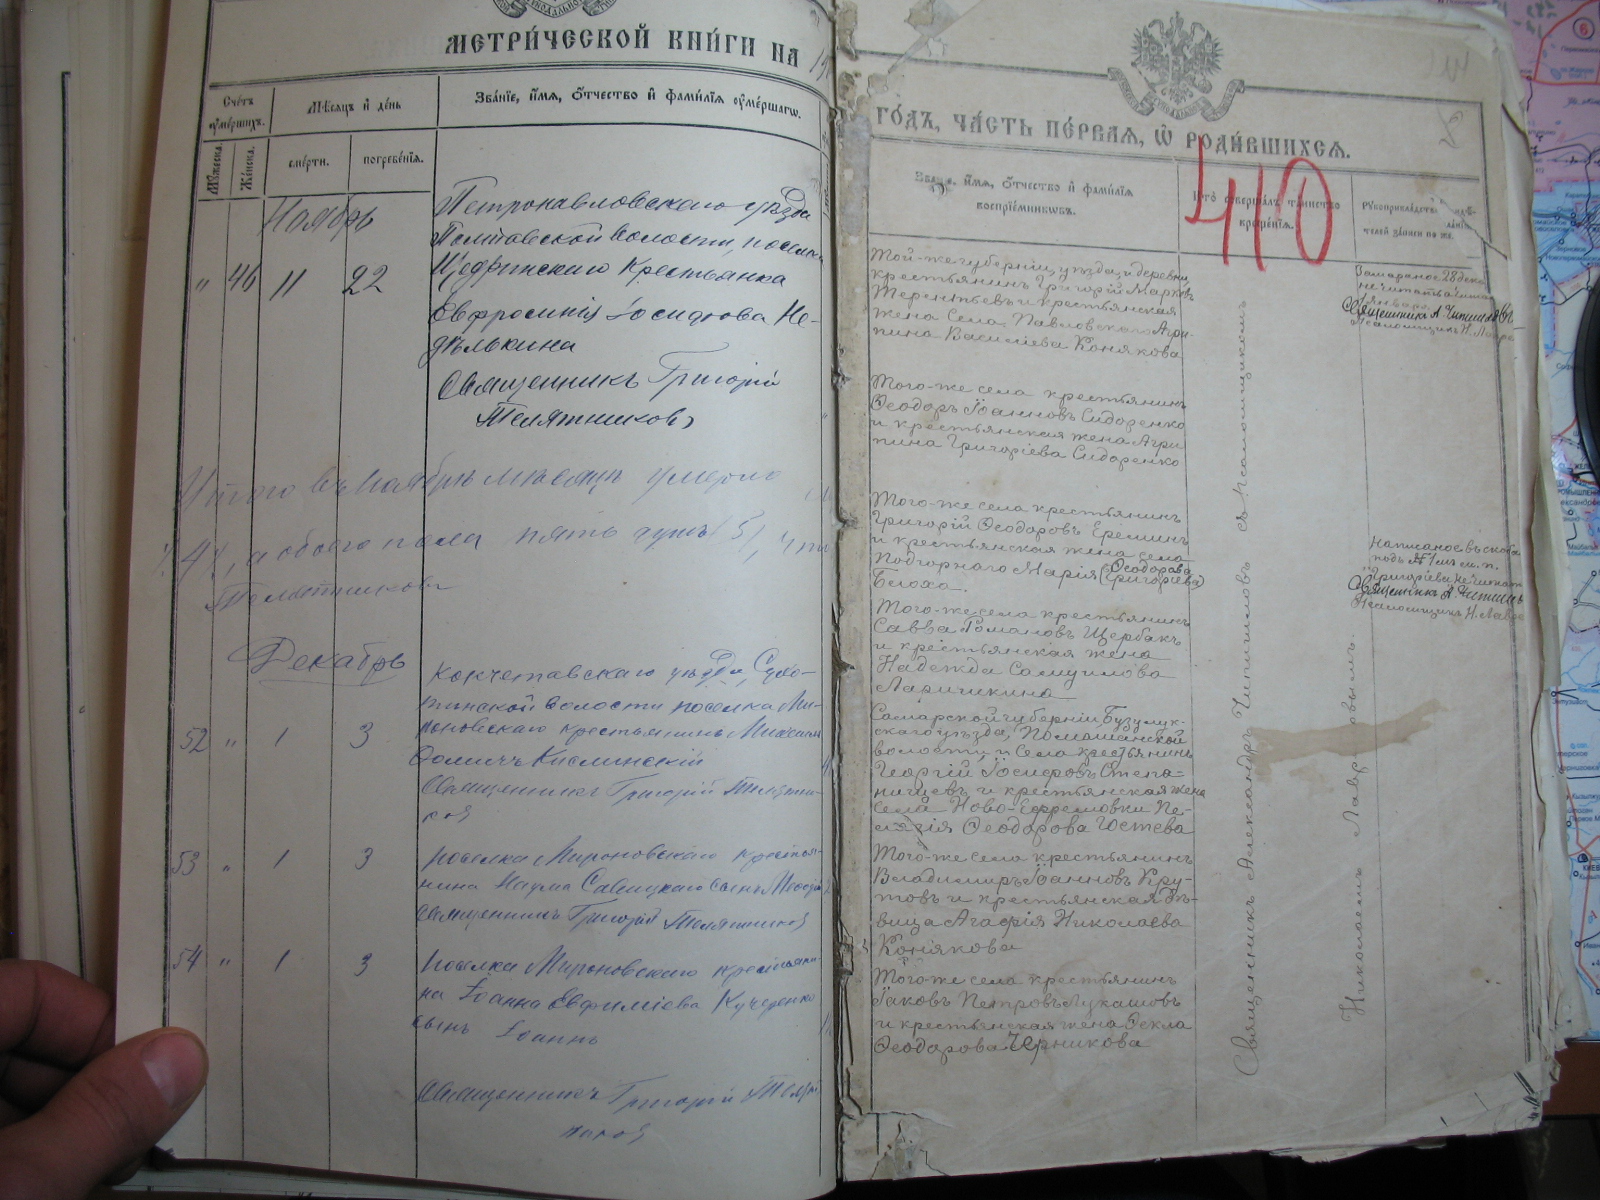 МЕТРИ́ЧЕСКОЙ КНИ́ГИ НА 19
Сче́тъ умершихъ.
Мѣ́сяцъ и҆ де́нь
Зва́нїе, и҆́мѧ, ѻ҆́тчество и҆ фами́лїѧ оу҆ме́ршагѡ.
Му́жеска.
Же́нска.
сме́рти.
погребе́нїѧ.
Ноябрь
Петропавловскаго уѣзда
Полтавской волости, поселка
" 46 11 22 Щедринскаго крестьянка
Евфросинія Іосифова Не-
дѣлькина
Священникъ Григорій
Телятниковъ
Итого въ Ноябрѣ мѣсяцѣ умерло
4, а обоего пола пять душъ (5), что
Телятниковъ
Декабрь
Кокчетавскаго уѣзда, Суво-
волости поселка Ми-
52 " 1 3 роновскаго крестьянинъ
Кислинскій
Священникъ Григорій Телятни-
ковъ
53 " 1 3 поселка Мироновскаго крестья-
нина Наума Савицкаго сынъ
Священникъ Григорій Телятниковъ
54 " 1 3 поселка Мироновскаго крестьяни
на Іоанна Евфиміева Кучеренко
сынъ Іоаннъ
Священникъ Григорій Телят
никовъ
ГО́ДЪ, ЧА́СТЬ ПЕ́РВАѦ, Ѡ҆ РОДИ́ВШИХСѦ.
410
Зва́нїе, и҆́мѧ, ѻ҆́тчество и҆ фами́лїѧ воспрїе́мникѡвъ.
Кто̀ соверша́лъ та́инство креще́нїѧ.
Рукоприкла́дство
телей за́писи по же
Той-же губерніи, уѣзда, и деревни
крестьянинъ Григорій Марковъ
Терентьевъ и крестьянская
жена Села Павловскаго Агри-
пина Василіева Конякова
Замараное 28 дека
не читать а читать
Января
Священникъ А. Чипиловъ
Псаломщикъ Н. Лавро
Того-же села крестьянинъ
Ѳеодоръ Іоанновъ Сидоренко
и крестьянская жена Агри
пина Григоріева Сидоренко
Того-же села крестьянинъ
Григорій Ѳеодоровъ Ереминъ
и крестьянская жена села
Подгорнаго Марія Ѳеодорова (Григоріева)
Блоха.
Написаное въ скоб
подъ № 1мъ ж. п.
"Григоріева" не читать
Священникъ А. Чипиловъ
Псаломщикъ Н. Лавро
Того-же села крестьянинъ
Савва Романовъ Щербакъ
и крестьянская жена
Надежда Самуилова
Ларичкина
Самарской губерніи Бузулук-
скаго уѣзда, Ромашинской
волости, и Села крестьянинъ
Георгій Іосифовъ Степа-
нищевъ и крестьянская жена
села Ново-Ефремовки Пе-
лагія Ѳеодорова Гостева
Того-же села крестьянинъ
Владимиръ Іоанновъ Кру-
товъ и крестьянская дѣ-
вица Агафія Николаева
Конякова
Того-же села крестьянинъ
Іаковъ Петровъ Лукашовъ
и крестьянская жена Ѳекла
Ѳеодорова Черникова
Священникъ Александръ Чипиловъ съ псаломщикомъ
Николаемъ Лавровымъ.